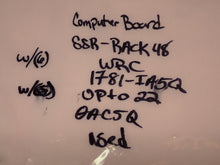 Computer Board
SSR-RACK 48
w/(6) WRC
1781-IA5Q
w/(5) UPto 22
OAC5Q
used